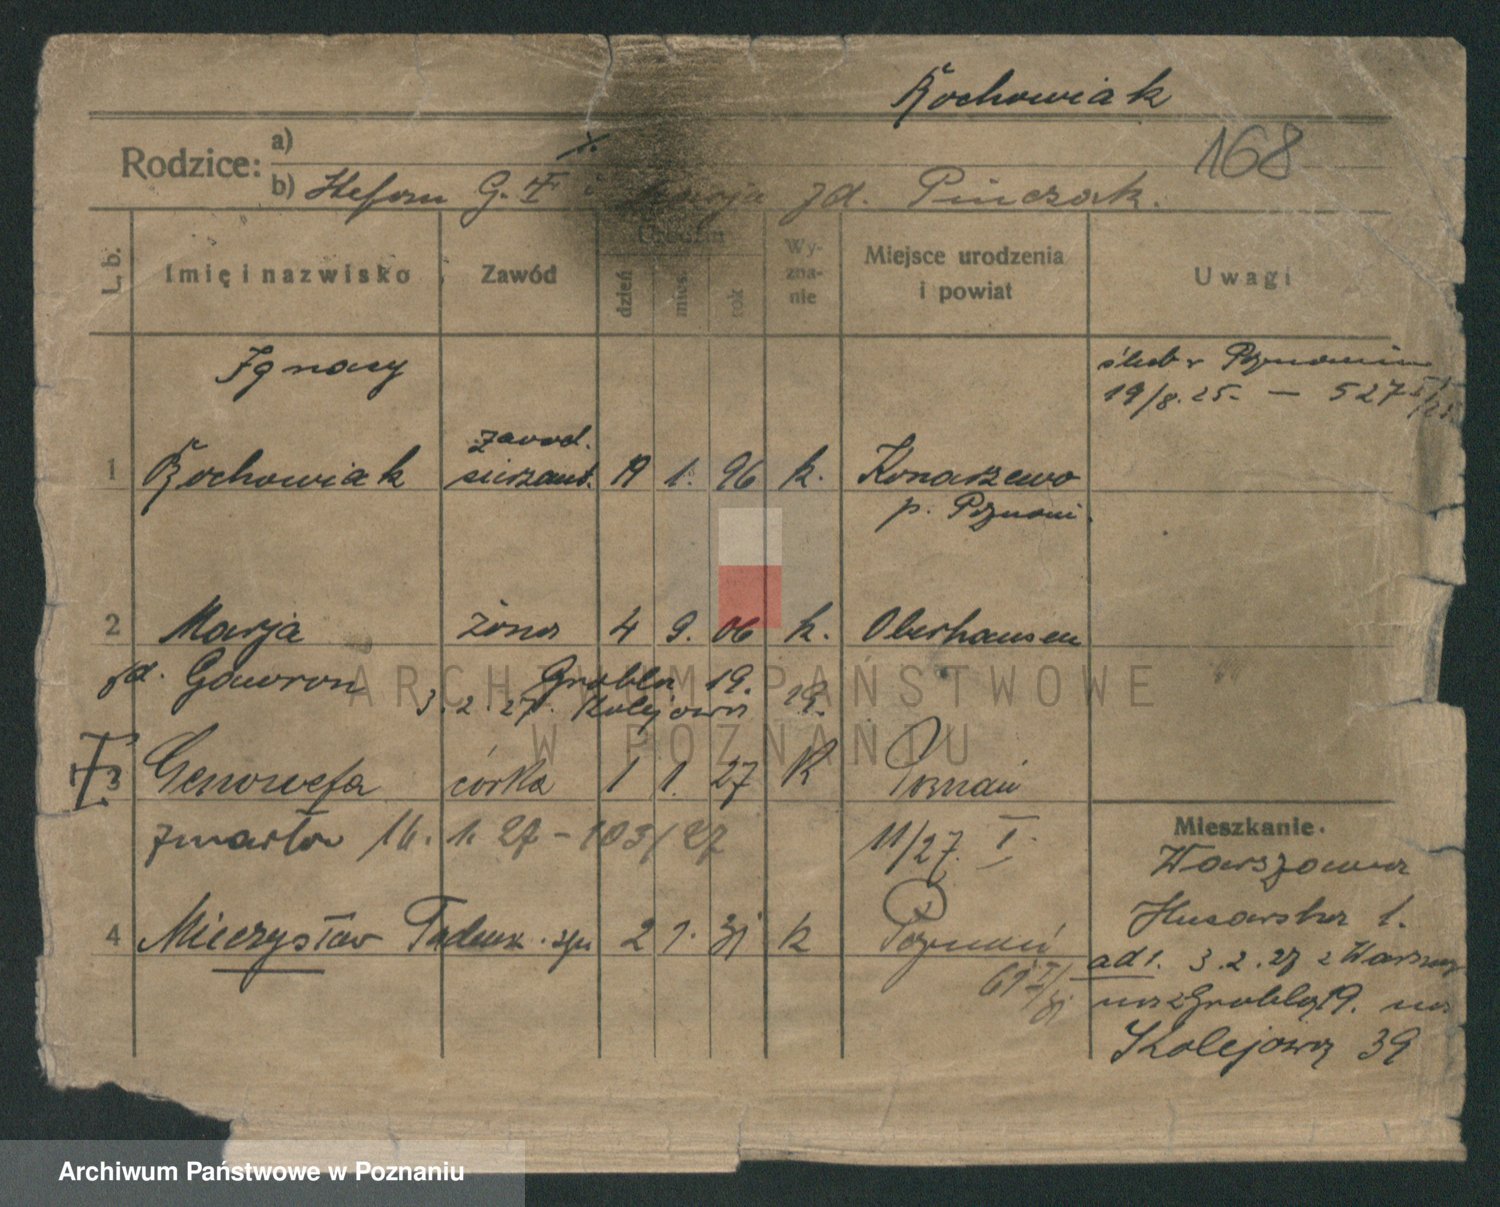 Rochowiak
168
Rodzice: a)
b) Stefan G. i Marja zd. Pinczak.
L. b.
Imię i nazwisko
Zawód
Urodzin
dzień
mies.
rok
Wy-
zna-
nie
Miejsce urodzenia
i powiat
Uwagi
Ignacy
ślub w Poznaniu
19/8. 25. — 527
zawod.
1 Rochowiak sierżant. 1. 96 k. Konarzewo
p. Poznań.
2 Marja żona 4 9. 06 k. Oberhausen
zd. Gaworon Grobla 19.
3. 2. 27. Kolejowa
3 Genowefa córka 1 1. 27 K Poznań
zmarła 16. 1. 27 – 103/27 11/27. I.
Mieszkanie.
Warszawa
Husarska 1.
4 Mieczysław Tadeusz syn 2 1. 31 k Poznań
61 I/31
ad 1. 3. 2. 27 z Warszawy
na Grobla 19. na
Kolejową 39
ARCHIWUM PAŃSTWOWE
W POZNANIU
Archiwum Państwowe w Poznaniu